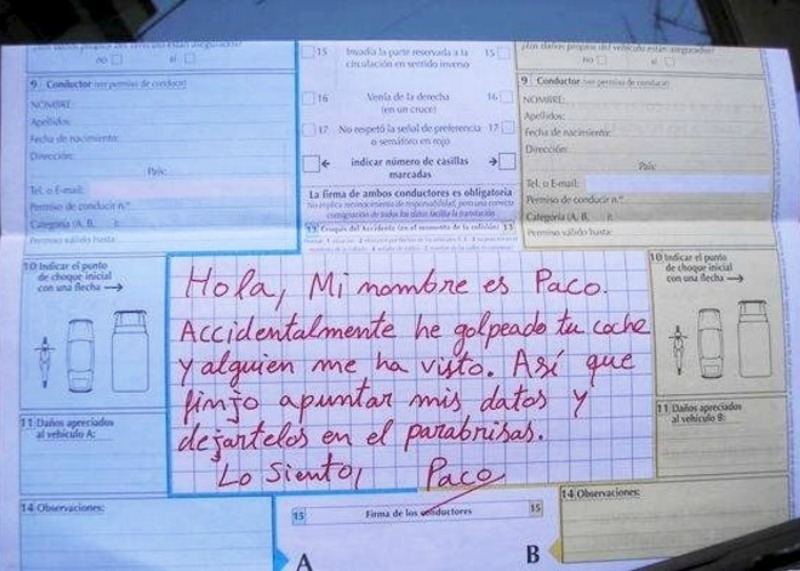 no  si
9 Conductor (ver permiso de conducir)
NOMBRE:
Apellidos:
Fecha de nacimiento:
Dirección:
País:
Tel. o E-mail:
Permiso de conducir n.º
Categoría (A, B,
Permiso válido hasta:
15 Invadía la parte reservada a la 15
circulación en sentido inverso
16 Venía de la derecha 16
(en un cruce)
17 No respetó la señal de preferencia 17
o semáforo en rojo
← indicar número de casillas →
marcadas
La firma de ambos conductores es obligatoria
No implica reconocimiento de responsabilidad, pero una correcta
consignación de todos los datos facilita la tramitación
13 Croquis del Accidente (en el momento de la colisión) 13
no  si
9 Conductor (ver permiso de conducir)
NOMBRE:
Apellidos:
Fecha de nacimiento:
Dirección:
País:
Tel. o E-mail:
Permiso de conducir n.º
Categoría (A, B,
Permiso válido hasta:
10 Indicar el punto
de choque inicial
con una flecha →
Hola, Mi nombre es Paco.
Accidentalmente he golpeado tu coche
y alguien me ha visto. Así que
finjo apuntar mis datos y
dejartelos en el parabrisas.
Lo Siento, Paco
10 Indicar el punto
de choque inicial
con una flecha →
11 Daños apreciados
al vehículo A:
11 Daños apreciados
al vehículo B:
14 Observaciones:
15 Firma de los conductores 15
A B
14 Observaciones: